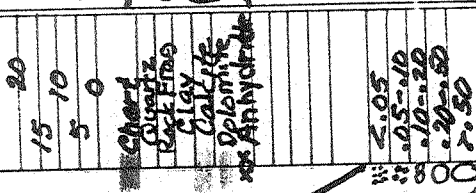 20
15
10
5
0
Chert
Quartz
Rock Frag
Clay
Calcite
Dolomite
Anhydride
<.05
.05-.10
.10-.20
.20-.50
>.50